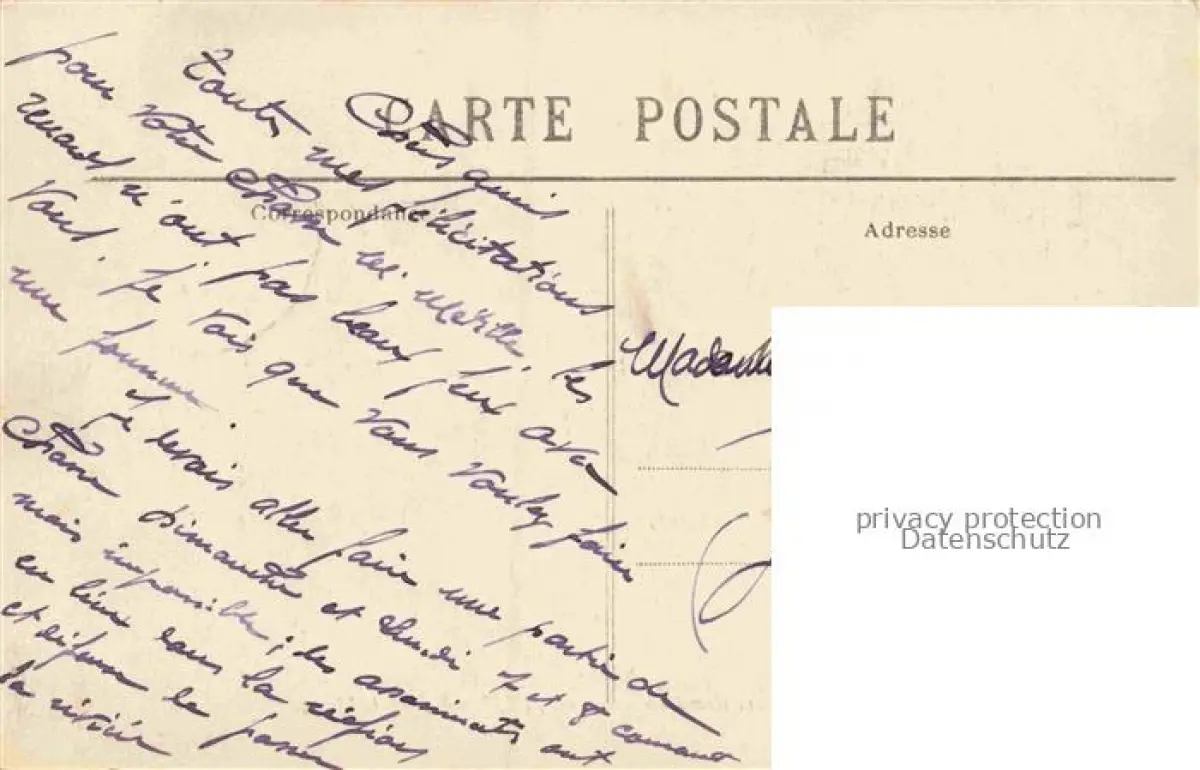 CARTE POSTALE
Correspondance
Adresse
Chis
toutes mes félicitations
pour votre chasse les
renards n'ont pas beau jeu avec
vous. Je vois que vous voulez faire
une
Je devais aller faire une partie de
chasse dimanche et lundi 7 et 8 courant
mais impossible; les assassinats ont
eu lieu dans la région
et défense de passer
la rivière
privacy protection
Datenschutz